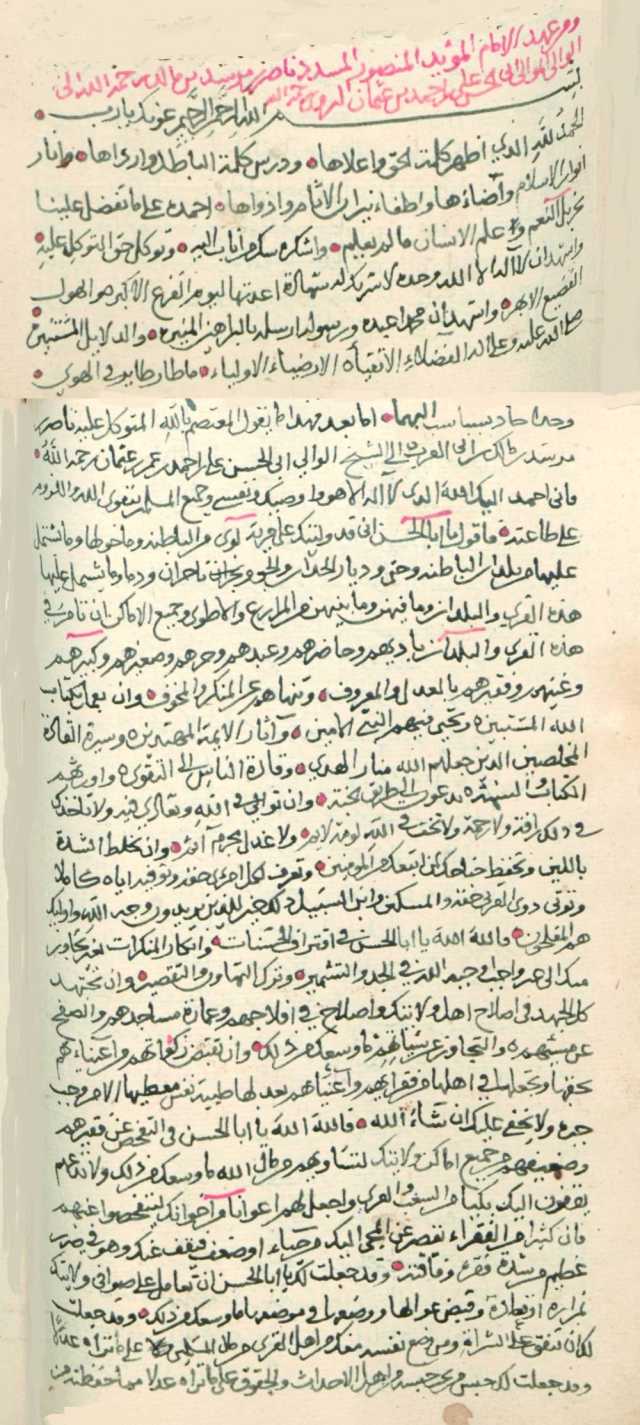 ومن عهد الامام المؤيد المنصور المسدد ناصر بن مرشد بن مالك رحمه الله الى
الوالي الموالي ابي الحسن علي بن احمد بن عثمان النزوي رحمه الله
بسم الله الرحمن الرحيم عونك يا رب
الحمد لله الذي اظهر كلمة الحق واعلاها ودرس كلمة الباطل واراها وانار
انوار الاسلام وأضاءها واطفاء نيران الآثام واذواها احمده على ما تفضل علينا
بجزيل النعم وعلم الانسان ما لم يعلم واشكره شكر من اناب اليه وتوكل حق التوكل عليه
واشهد ان لا اله الا الله وحده لا شريك له شهادة اعدتها ليوم الفزع الاكبر هو الهول
الفضيع الابهر واشهد أن محمدا عبده ورسوله ارسله بالبراهين المنيرة والدلايل المستنيرة
صلى الله عليه وعلى اله الفضلاء الأتقياء الارضياء الاولياء ما طار طاير في الهوى
وحدا حاد بسباسب اليهما اما بعد فهذا ما يقول المعتصم بالله المتوكل عليه ناصر
بن مرشد بن مالك الى الشيخ الوالي ابي الحسن علي بن احمد بن عمر بن عثمان رحمه الله
فاني احمد اليك الله الذي لا اله الا هو واوصيك ونفسي وجميع المسلمين بتقوى الله ولزوم
على طاعته فاقول يا ابا الحسن اني قد وليتك على قرية لوى من الباطنه وما حولها وما يشتمل
عليها من بلدان الباطنه وحتى وديار الحدان والجو وما يشمل عليها
هذه القرى والبلدان وما فيهن وما بينهن من المزارع والاطوى وجميع الاماكن ان تامر في
هذه القرى والبلدان باديهم وحاضرهم وعبدهم وحرهم وصغيرهم وكبيرهم
وغنيهم وفقيرهم بالعدل والمعروف وتنهاهم عن المنكر والمخوف وان تعمل بكتاب
الله المستبين وتحيي فيهم سنة النبي الامين وآثار الايمة المهتدين وسيرة القادة
المخلصين الذين جعلهم الله منار الهدى وقادة الناس الى التقوى واورثهم
الكتاب والسنة يدعون الى طريق الجنة وان توالي في الله وتعادي فيه ولا تاخذك
في ذلك رافة ولا رحمة ولا تخف في الله لومة لايم ولا عذل مجرم آثم وان تخلط الشدة
باللين وتخفض جناحك لمن اتبعك من المؤمنين وتعرف لكل امرئ حقه وتوفيه اياه كاملا
وتوتي ذوى القربى حقه والمسكين وابن السبيل ذلك خير للذين يريدون وجه الله واوليك
هم المفلحون فالله الله يا ابا الحسن في اقتراف الحسنات وانكار المنكرات بغير تجاوز
منك الى غير واجب وعليك في الجد والتشمير وترك التهاون والتقصير وان تجتهد
كل الجهد في اصلاح اهل ولايتك واصلاح افلاجهم وعمارة مساجدهم والصفح
عن مسيئهم والتجاوز عن سيئاتهم ما وسعك من ذلك وان تقبض زكاتهم من اغنياءهم
بحقها وتجعلها في اهلها من فقرايهم واغنياءهم بعد لها طيبة نفس معطيها الامر وجب
جبره ولا يخفى عليك ان شاء الله فالله الله يا ابا الحسن في التفحص عن فقيرهم
وضعيفهم من جميع اماكن ولايتك لتساويهم من مال الله ما وسعك من ذلك ولا تدعهم
يفدون اليك بكتاب من السفن والقرى واجعل لهم اعوانا من اخوانك ليتفحصوا عنهم
فان كثيرا من الفقراء يقصر عن المجئ اليك من حياء او ضعف فيقف عنك وهو في ضر
عظيم من شدة فقره وفاقته وقد جعلت لك يا ابا الحسن ان تعامل على صوافي ولايتك
بمزارعة او قعادة وقبض غوالها ووضعها في موضعها ما وسعك من ذلك وقد جعلت
لك ان تنفق على الشراة ومن وضع نفسه معك من اهل القرى من مال المسلمين على ما تراه عدلا
وقد جعلت لك حبس من يجب حبسه من اهل الاحداث والحقوق على ما تراه عدلا مما حفظته من